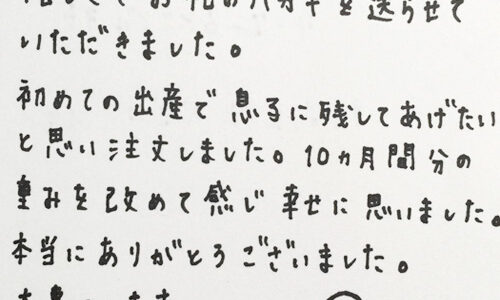 お礼のハガキを送らせて
いただきました。
初めての出産で息子に残してあげたい
と思い注文しました。10ヵ月間分の
重みを改めて感じ幸せに思いました。
本当にありがとうございました。